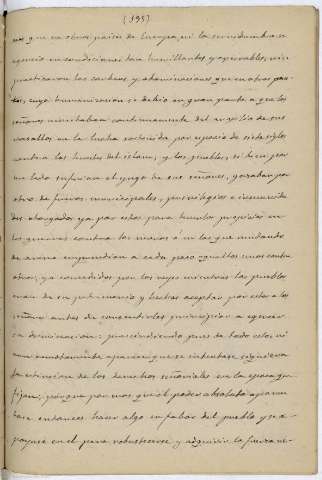 (195)
que en otros países de Europa, ni la servidumbre se
ejerció en condiciones tan humillantes y
practicaron los y abominaciones que en otras par-
tes, cuya humanización se debió en gran parte a que los
señores necesitaban continuamente del auxilio de sus
vasallos en la lucha sostenida por espacio de siete siglos
contra las huestes del islam, y los pueblos, si bien por
un lado sufrían el yugo de sus señores, gozaban por
otro de fueros municipales, privilegios e inmunida-
des otorgados ya por estos para tenerlos propicios en
las guerras contra los moros ó en las que mudando
de arena emprendían a cada paso aquellos unos contra
otros, ya concedidos por los reyes mientras los pueblos
eran de su patrimonio y hechos aceptar por estos a los
señores antes de consentirles principiar a ejercer
su dominación; prescindiendo pues de todo esto, ni
aun remotamente aparece que se intentase siquiera
la extinción de los derechos señoriales en la época que
fijan, porque por mas que el poder absoluto
entonces hacer algo en fabor del pueblo y se a-
poyase en el para robustecerse y adquirir la fuerza